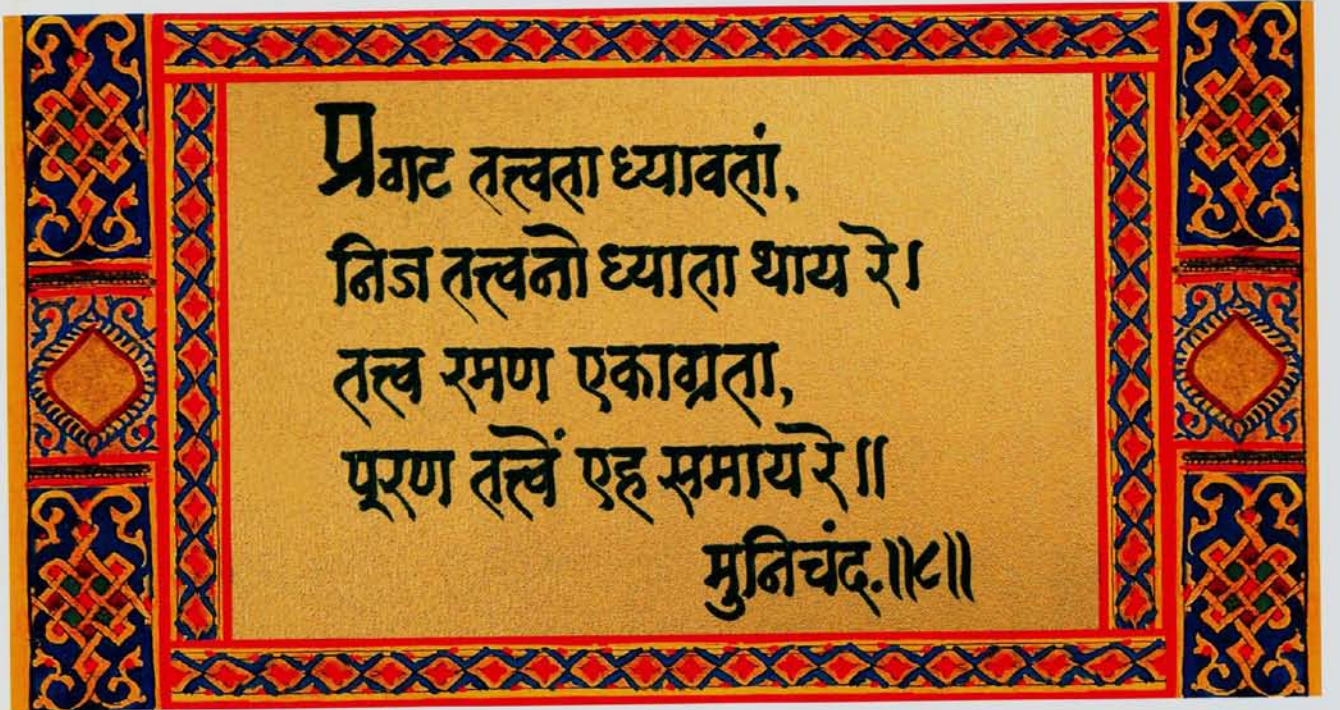 प्रगट तत्त्वता ध्यावतां,
निज तत्त्वनो ध्याता थाय रे।
तत्त्व रमण एकाग्रता,
पूरण तत्त्वें एह समाय रे॥
मुनिचंद.॥८॥